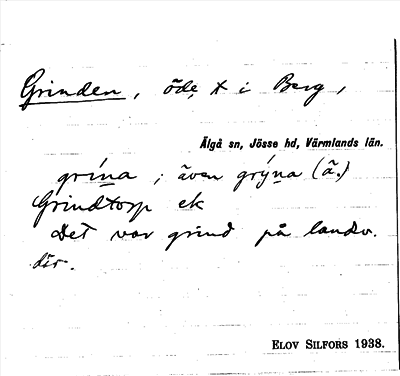 Grinden, öde, x i Berg,
Älgå sn, Jösse hd, Värmlands län.
grína ; även grýna (ä.)
Grindtorp ek
Det var grind på landsv.
där.
ELOV SILFORS 1938.